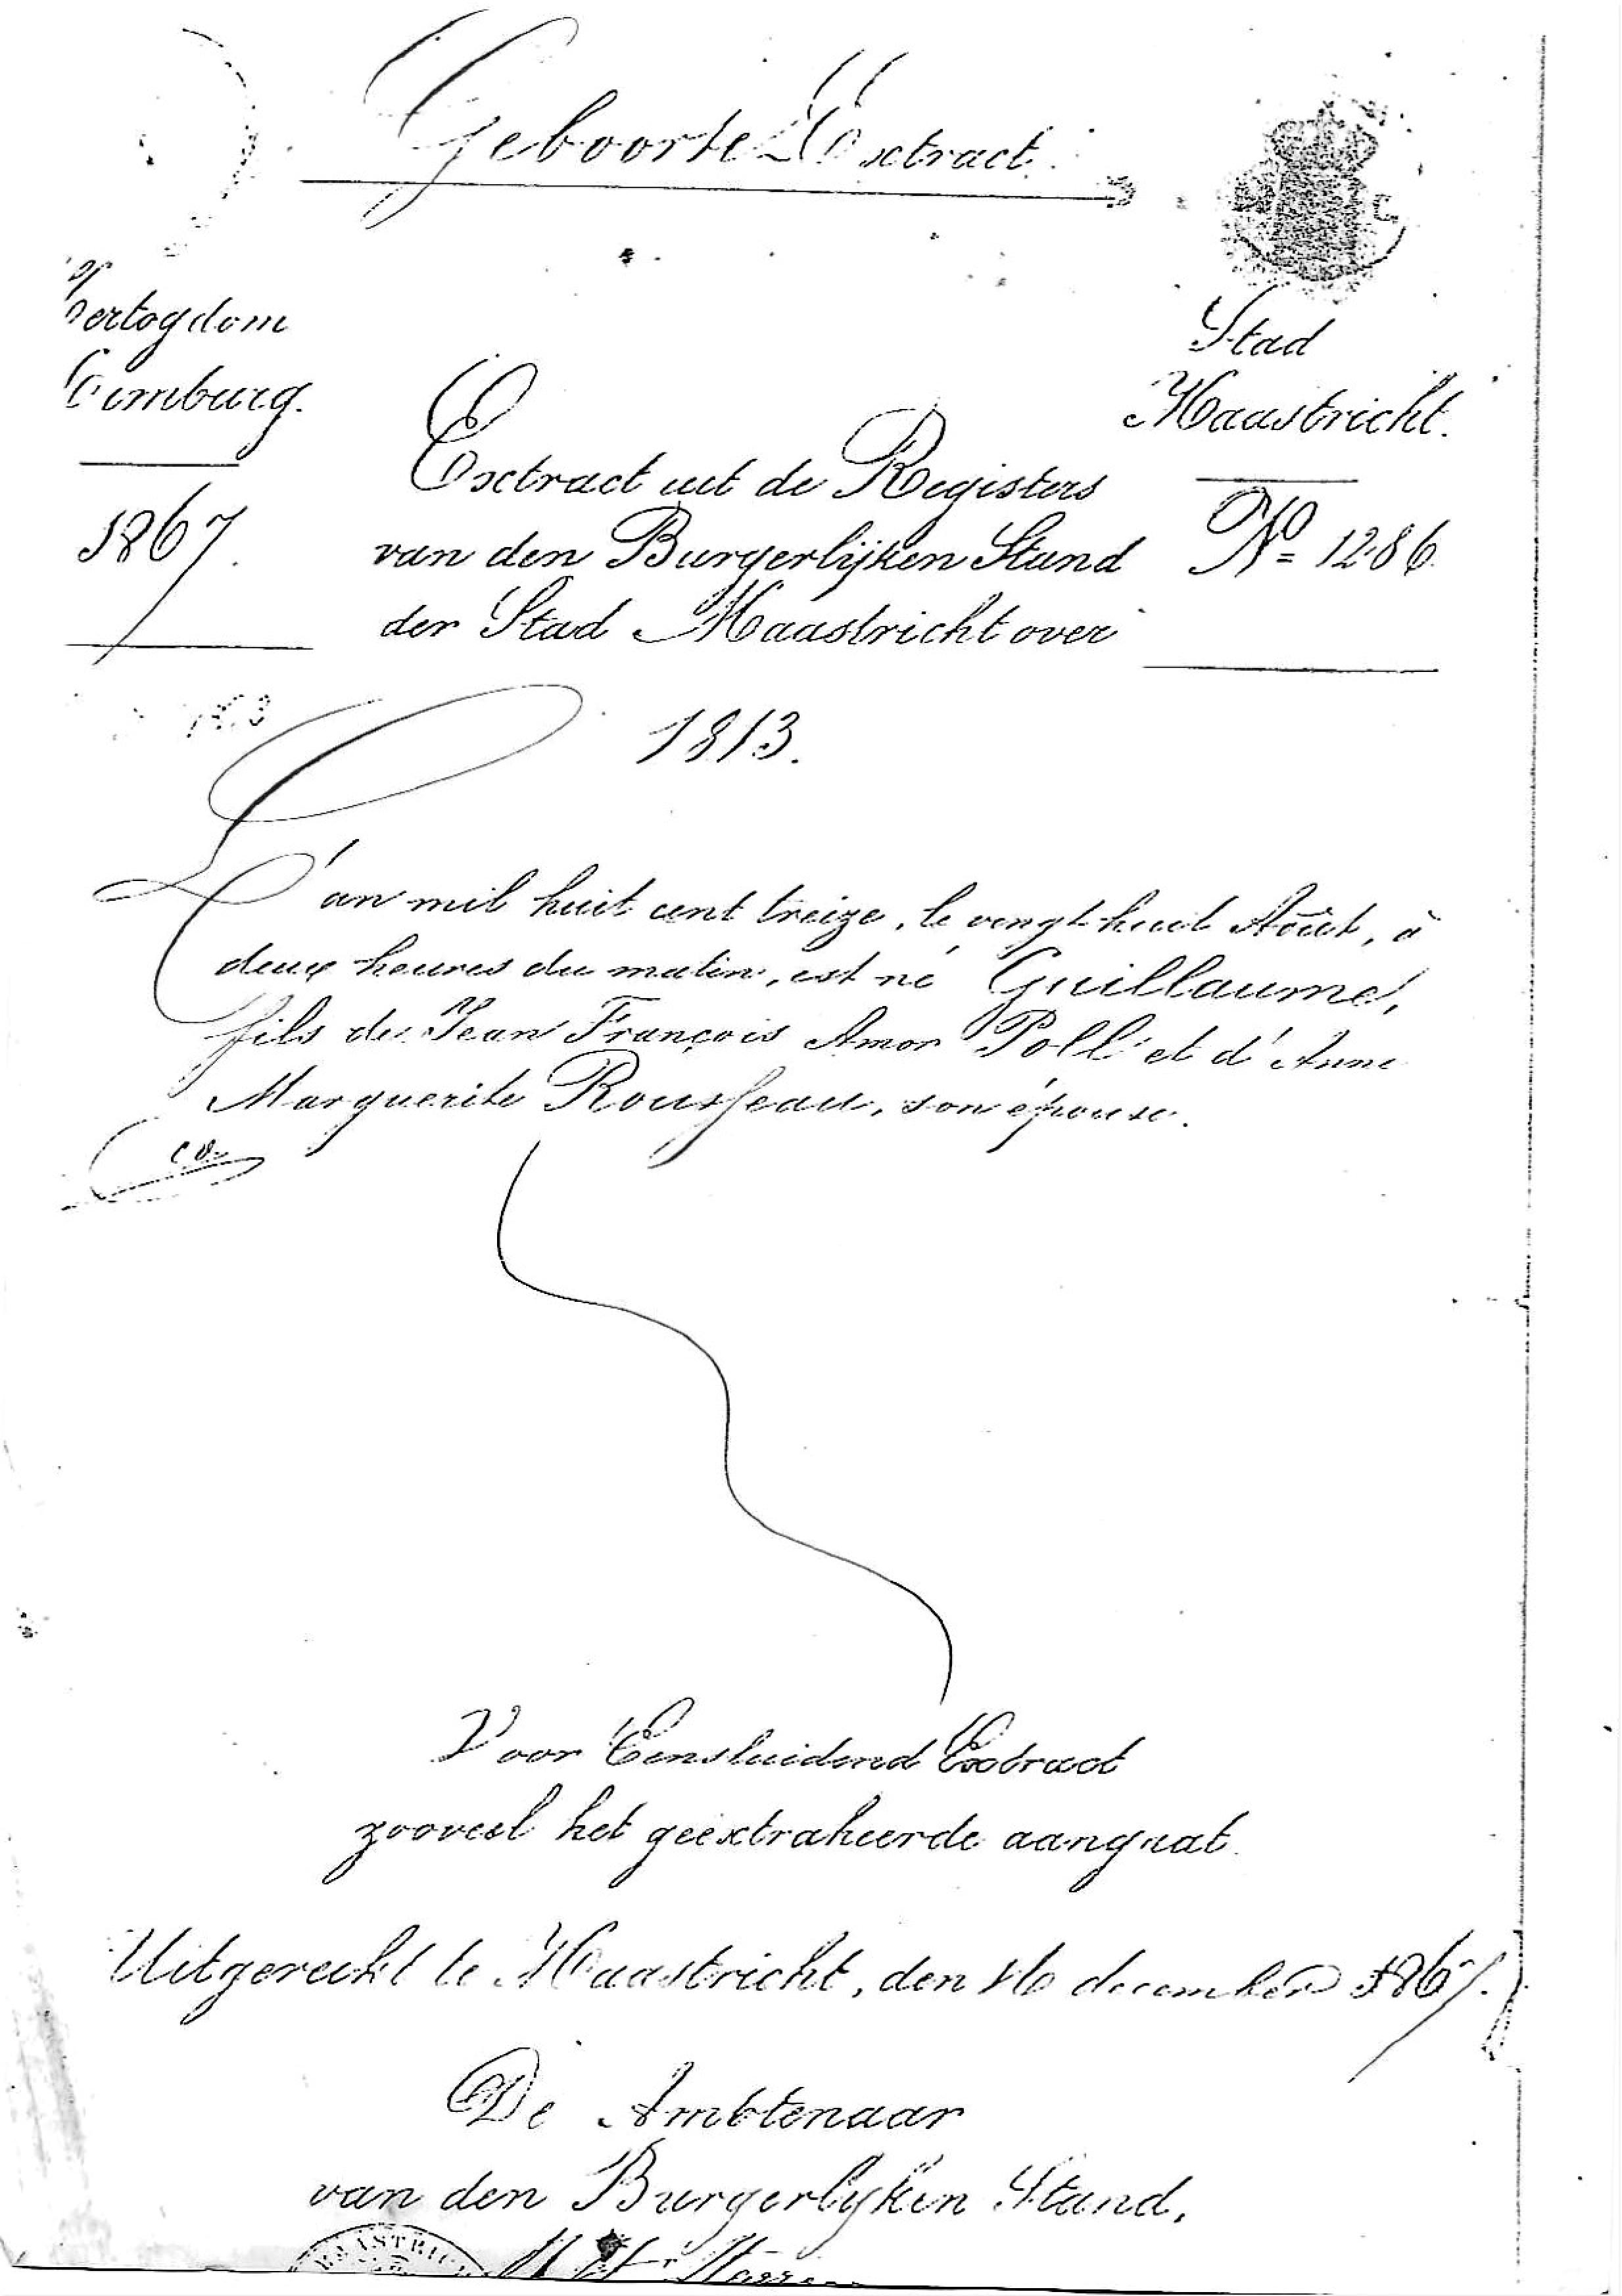 Geboorte Extract.
Hertogdom
Limburg.
1867.
Stad
Maastricht.
Nº 1286.
Extract uit de Registers
van den Burgerlijken Stand
der Stad Maastricht over
1813.
L'an mil huit cent treize, le vingt huit Août, à
deux heures du matin, est né Guillaume,
fils de Jean François Amor Poll et d'Anne
Marguerite Rousseau, son épouse.
Voor Eensluidend Extract
zooveel het geëxtraheerde aangaat.
Uitgereikt te Maastricht, den 16 december 1867.
De Ambtenaar
van den Burgerlijken Stand,